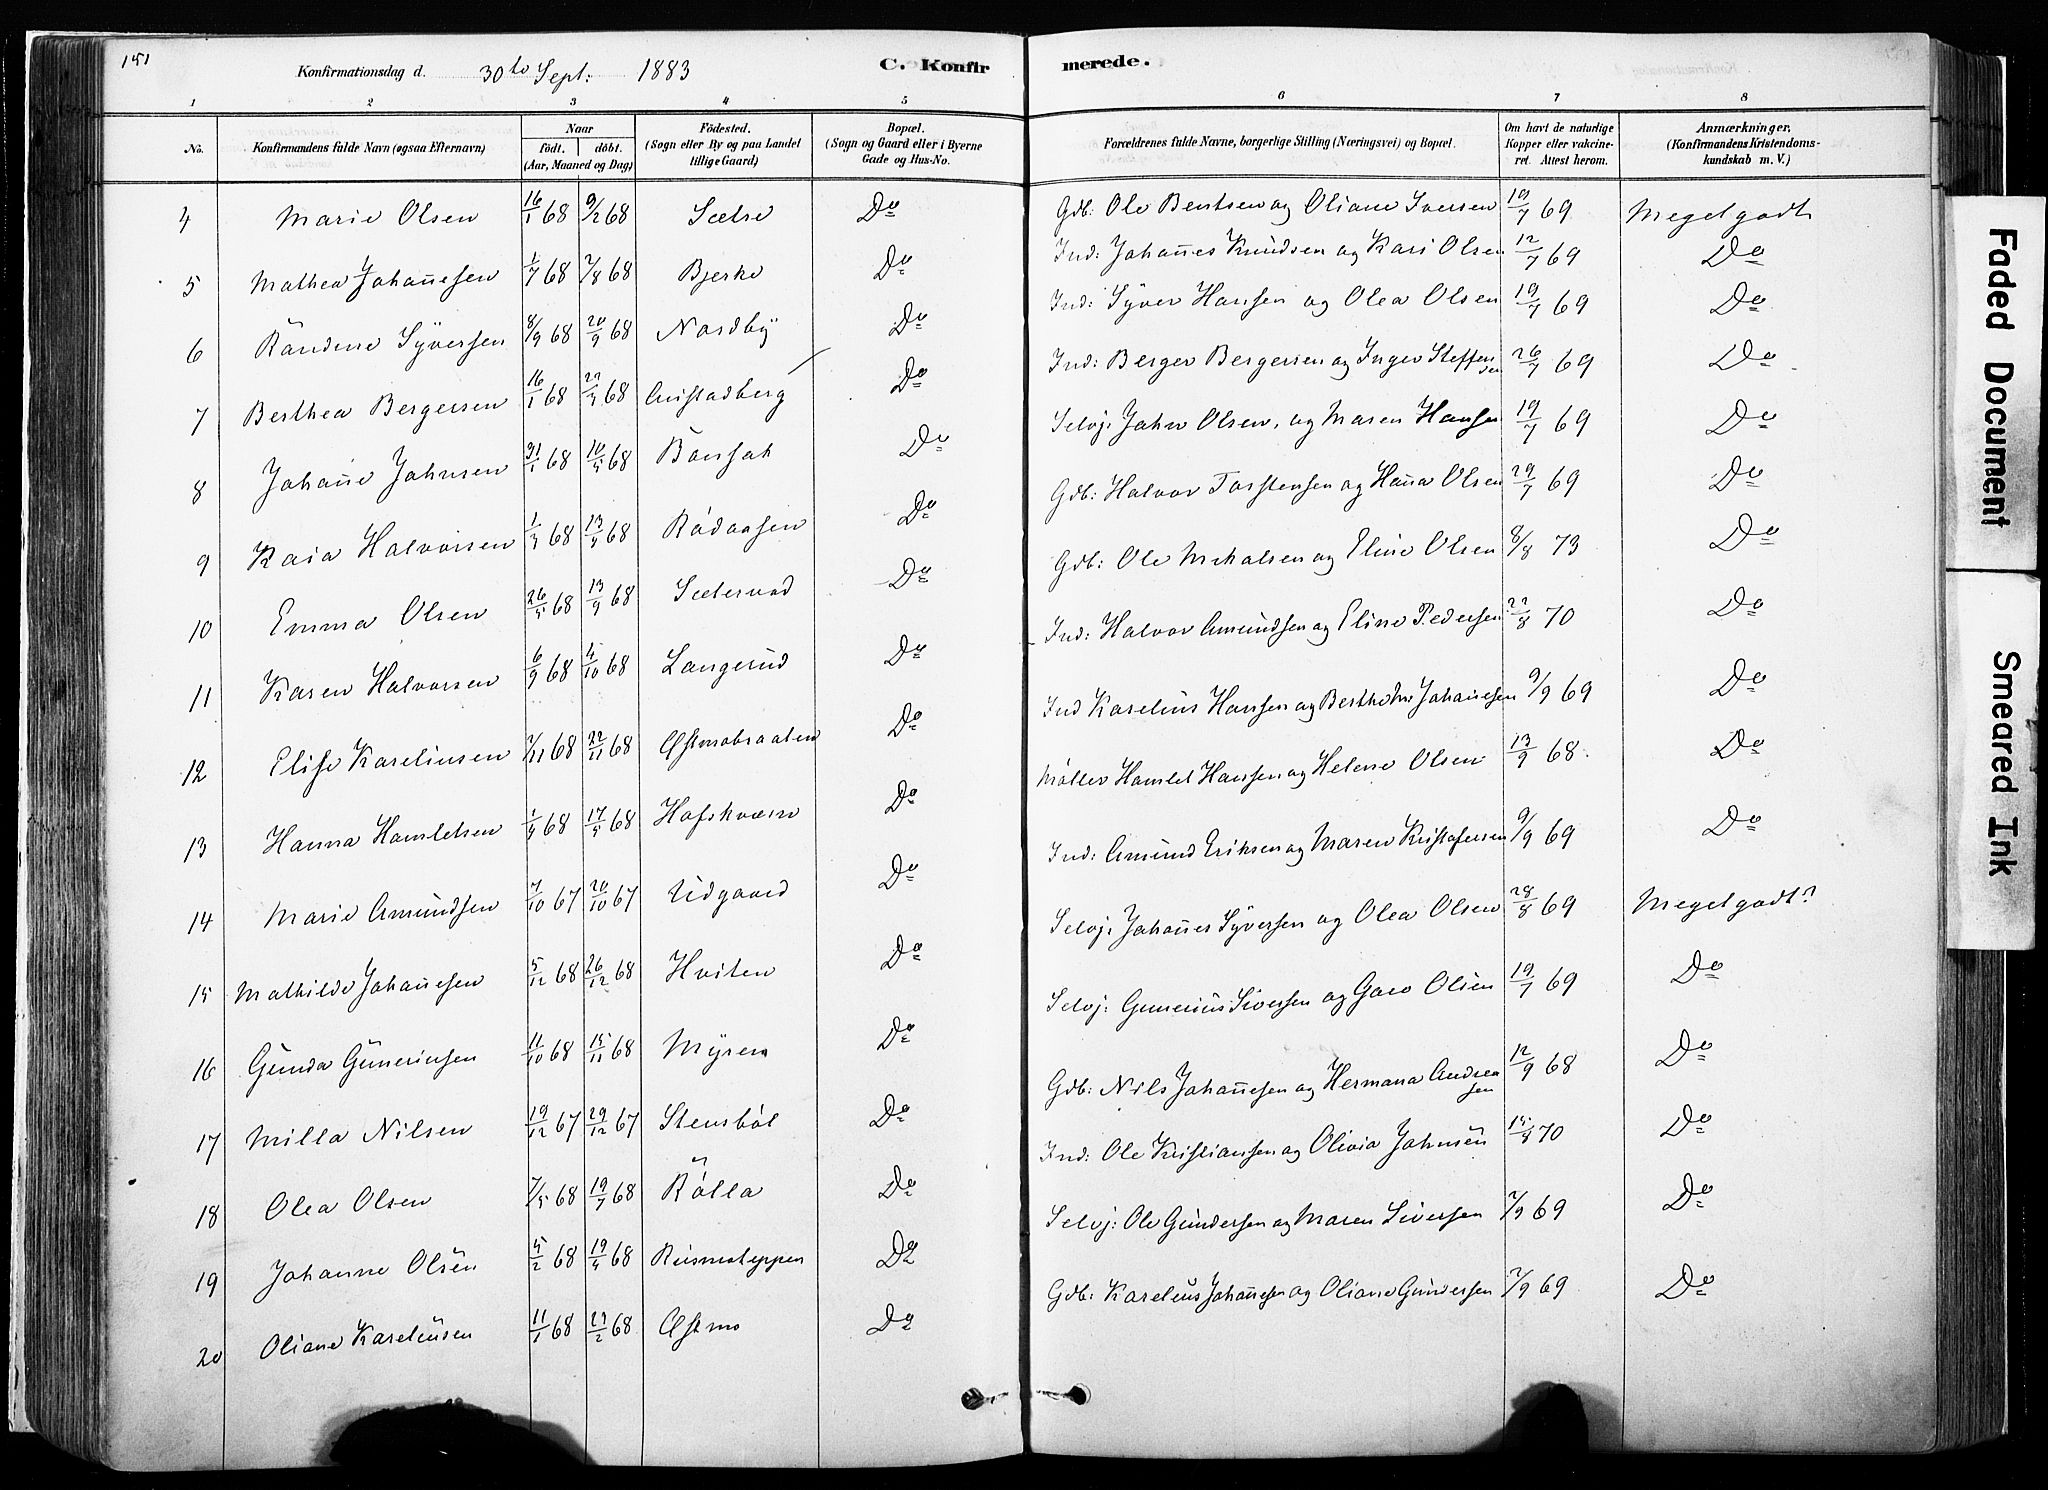 151
Konfirmationsdag d. 30te Sept: 1883
C. Konfir merede.
1 2 3 4 5 6 7 8
No.
Konfirmandens fulde Navn (ogsaa Efternavn)
Naar
födt. döbt.
(Aar, Maaned og Dag)
Födested.
(Sogn eller By og paa Landet
tillige Gaard)
Bopæl.
(Sogn og Gaard eller i Byerne
Gade og Hus-No.
Forældrenes fulde Navne, borgerlige Stilling (Næringsvei) og Bopæl.
Om havt de naturlige
Kopper eller vakcine-
ret. Attest herom.
Anmærkninger,
(Konfirmandens Kristendoms-
kundskab m. V.)
4 Marie Olsen 16/1 68 9/2 68 Sætre Do Gdb: Ole Bentsen og Oliane Iversen 19/7 69 Meget godt
5 Mathea Johannesen 1/7 68 2/8 68 Bjerke Do Ind: Johannes Knudsen og Kari Olsen 12/7 69 Do
6 Randine Syversen 8/9 68 20/9 68 Nordby Do Ind: Syver Hansen og Olea Olsen 19/7 69 Do
7 Berthea Bergersen 16/1 68 68 Do Ind: Berger Bergersen og Inger Steffen
sen 26/7 69 Do
8 Johanne Johnsen 31/1 68 10/5 68 Do Selvj. John Olsen, og Maren Hansen 19/7 69 Do
9 Kaia Halvorsen 1/3 68 13/4 68 Rödaasen Do Gdb: Halvor Torstensen og Hanna Olsen 29/7 69 Do
10 Emma Olsen 26/5 68 13/9 68 Do Gdb: Ole Mikalsen og Eline Olsen 8/8 73 Do
11 Karen Halvorsen 6/9 68 4/10 68 Langerud Do Ind: Halvor Amundsen og Eline Pedersen 22/8 70 Do
12 Elise Kareliusen 2/11 68 22/11 68 Østmobraaten Do Ind Karelius Hansen og Berthe Johannesen 9/9 69 Do
13 Hanna Hamletsen 1/4 68 17/5 68 Hofskværn Do Möller Hamlet Hansen og Helene Olsen 13/9 68. Do
14 Marie Amundsen 7/10 67 20/10 67 Udgaard Do Ind: Amund Eriksen og Maren Kristofersen 9/9 69 Do
15 Mathilde Johannesen 5/12 68 26/12 68 Hviten Do Selvj. Johannes Syversen og Olea Olsen 28/8 69 Meget godt?
16 Gunda Guneriusen 11/10 68 15/11 68 Myren Do Selvj: Gunerius Siversen og Goro Olsen 19/7 69 Do
17 Milla Nilsen 19/12 67 29/12 67 Stensböl Do Gdb: Nils Johannesen og Hermana Andrea
sen 12/9 68 Do
18 Olea Olsen 7/5 68 19/7 68 Rölla Do Ind: Ole Kristiansen og Olivia Johnsen 15/8 70 Do
19 Johanne Olsen 5/2 68 19/4 68 Do Selvj: Ole Gundersen og Maren Siversen 2/9 69 Do
20 Oliane Kareliusen 11/1 68 23/2 68 Østmo Do Gdb: Karelius Johannesen og Oliane Gundersen 2/9 69 Do
Faded Document
Smeared Ink